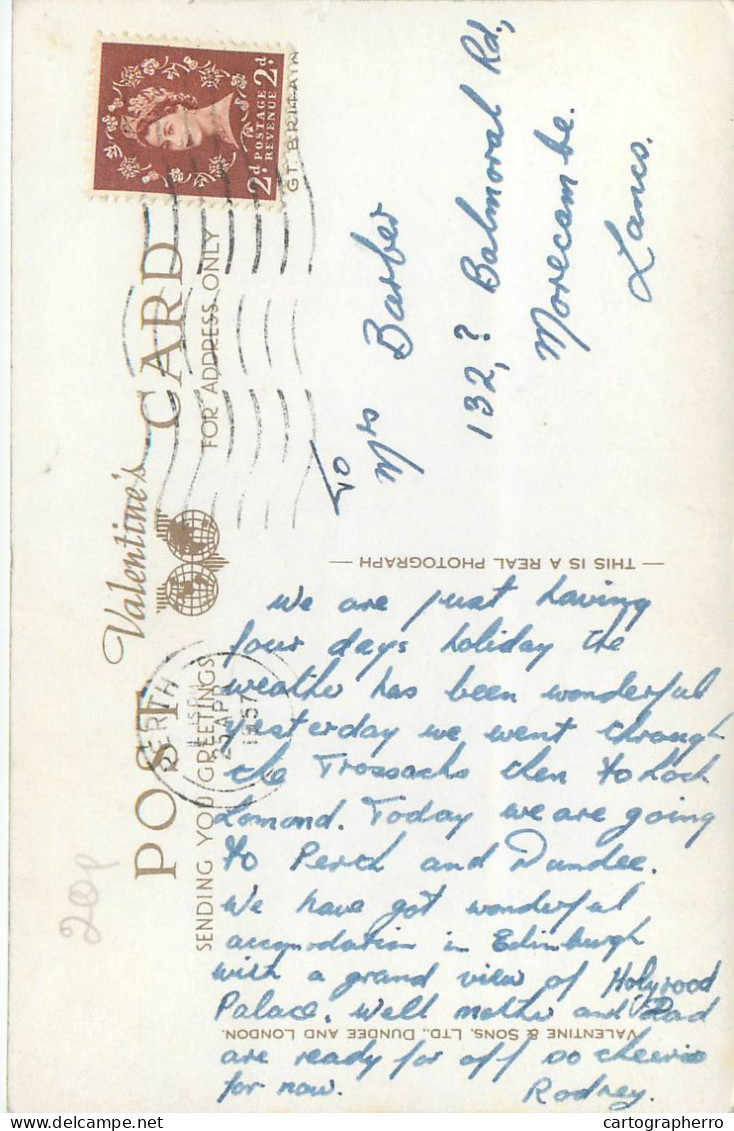 POST Valentine's CARD
SENDING YOU GREETINGS
FOR ADDRESS ONLY
2d POSTAGE REVENUE 2d
GT. BRITAIN
PERTH
25 APR
1957
To
Mrs Barber
132,? Balmoral Rd,
Morecambe.
Lancs.
— THIS IS A REAL PHOTOGRAPH —
We are just having
four days holiday the
weather has been wonderful
yesterday we went through
the Trossachs then to Loch
Lomond. Today we are going
to Perth and Dundee.
We have got wonderful
accomodation in Edinburgh
with a grand view of Holyrood
Palace. Well mother and Dad
are ready for off so cheerio
for now. Rodney.
VALENTINE & SONS, LTD., DUNDEE AND LONDON.
20p
cartographerro